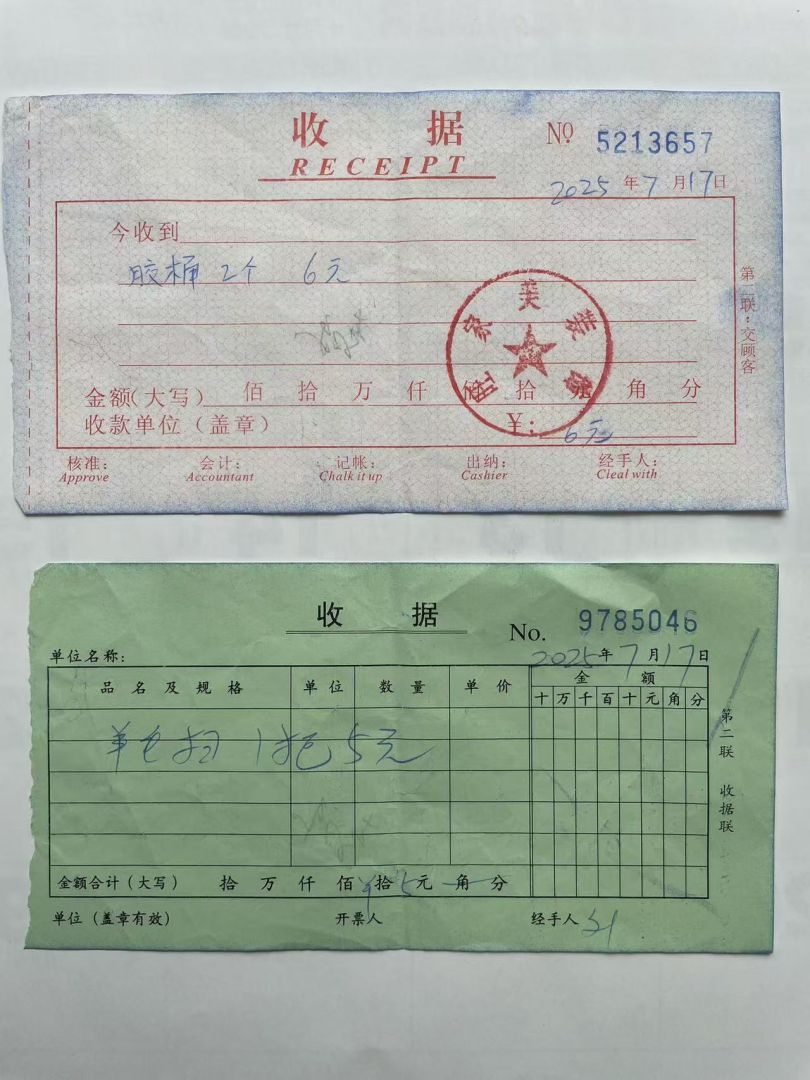 收 据
RECEIPT
No 5213657
2025 年 7 月 17 日
今收到
胶桶 2个 6元
金额(大写) 佰 拾 万 仟 佰 拾 元 角 分
收款单位(盖章)
¥: 6元
美装
第二联:交顾客
核准: 会计: 记帐: 出纳: 经手人:
Approve Accountant Chalk it up Cashier Cleal with
收 据
No. 9785046
单位名称:
2025 年 7 月 17 日
品 名 及 规 格 单 位 数 量 单 价 金 额
十 万 千 百 十 元 角 分
1把 5元
金额合计(大写) 拾 万 仟 佰 ¥ 拾 5 元 角 分
单位(盖章有效) 开票人 经手人 刘
第二联 收据联